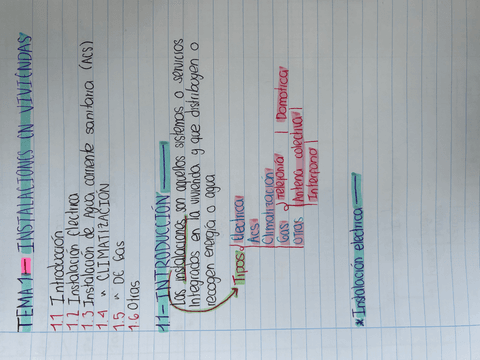 TEMA 1- INSTALACIONES EN VIVIENDAS
1.1 Introducción
1.2 Instalación Eléctrica
1.3 Instalación de Agua caliente sanitaria (ACS)
1.4 " CLIMATIZACIÓN
1.5 " DE Gas
1.6 Otras
1.1- INTRODUCCIÓN
Las instalaciones son aquellos sistemas o servicios
integrados en la vivienda y que distribuyen o
recogen energía o agua
Tipos: Electrica
ACS
Climatización
Gas
Otras Telefonia Domotica
Antena colectiva
Interfono
* Instalación electrica